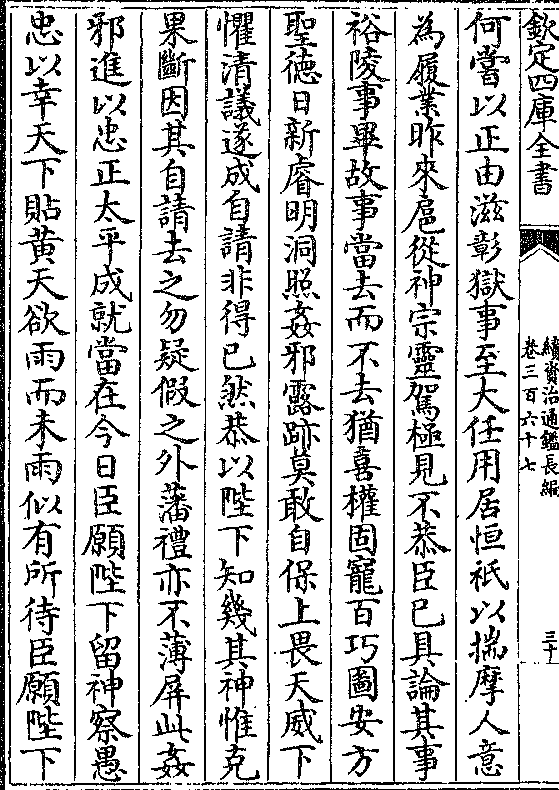 欽定四庫全書
續資治通鑑長編
卷三百六十七
三十
何嘗以正由滋彰獄事至大任用居恒祇以揣摩人意
為履業昨來扈從神宗靈駕極見不恭臣已具論其事
裕陵事畢故事當去而不去猶喜權固寵百巧圖安方
聖徳日新睿明洞照姦邪露跡莫敢自保上畏天威下
懼清議遂成自請非得已然恭以陛下知幾其神惟克
果斷因其自請去之勿疑假之外藩禮亦不薄屏此姦
邪進以忠正太平成就當在今日臣願陛下留神察愚
忠以幸天下貼黄天欲雨而未雨似有所待臣願陛下